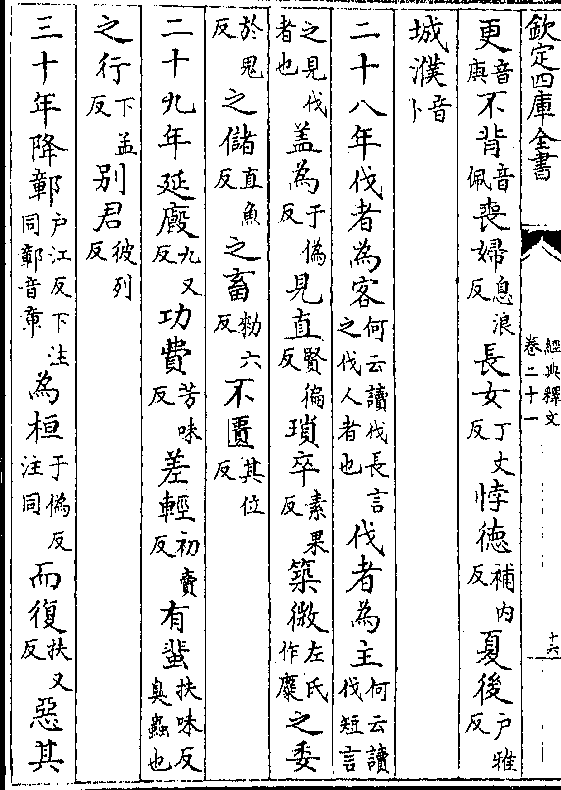 欽定四庫全書
經典釋文
卷二十一
十六
更音庚不背音佩喪婦息浪反長女丁丈反悖德補内反夏後户雅反
城濮音卜
二十八年伐者為客何云讀伐長言之伐人者也伐者為主何云讀伐短言
之見伐者也盖為于偽反見直賢徧反瑣卒素果反築微左氏作麋之委
於鬼反之儲直魚反之畜勑六反不匱其位反
二十九年延廏九又反功費芳味反差輕初賣反有蜚扶味反臭蟲也
之行下孟反别君彼列反
三十年降鄣户江反下注同鄣音章為桓于偽反注同而復扶又反惡其